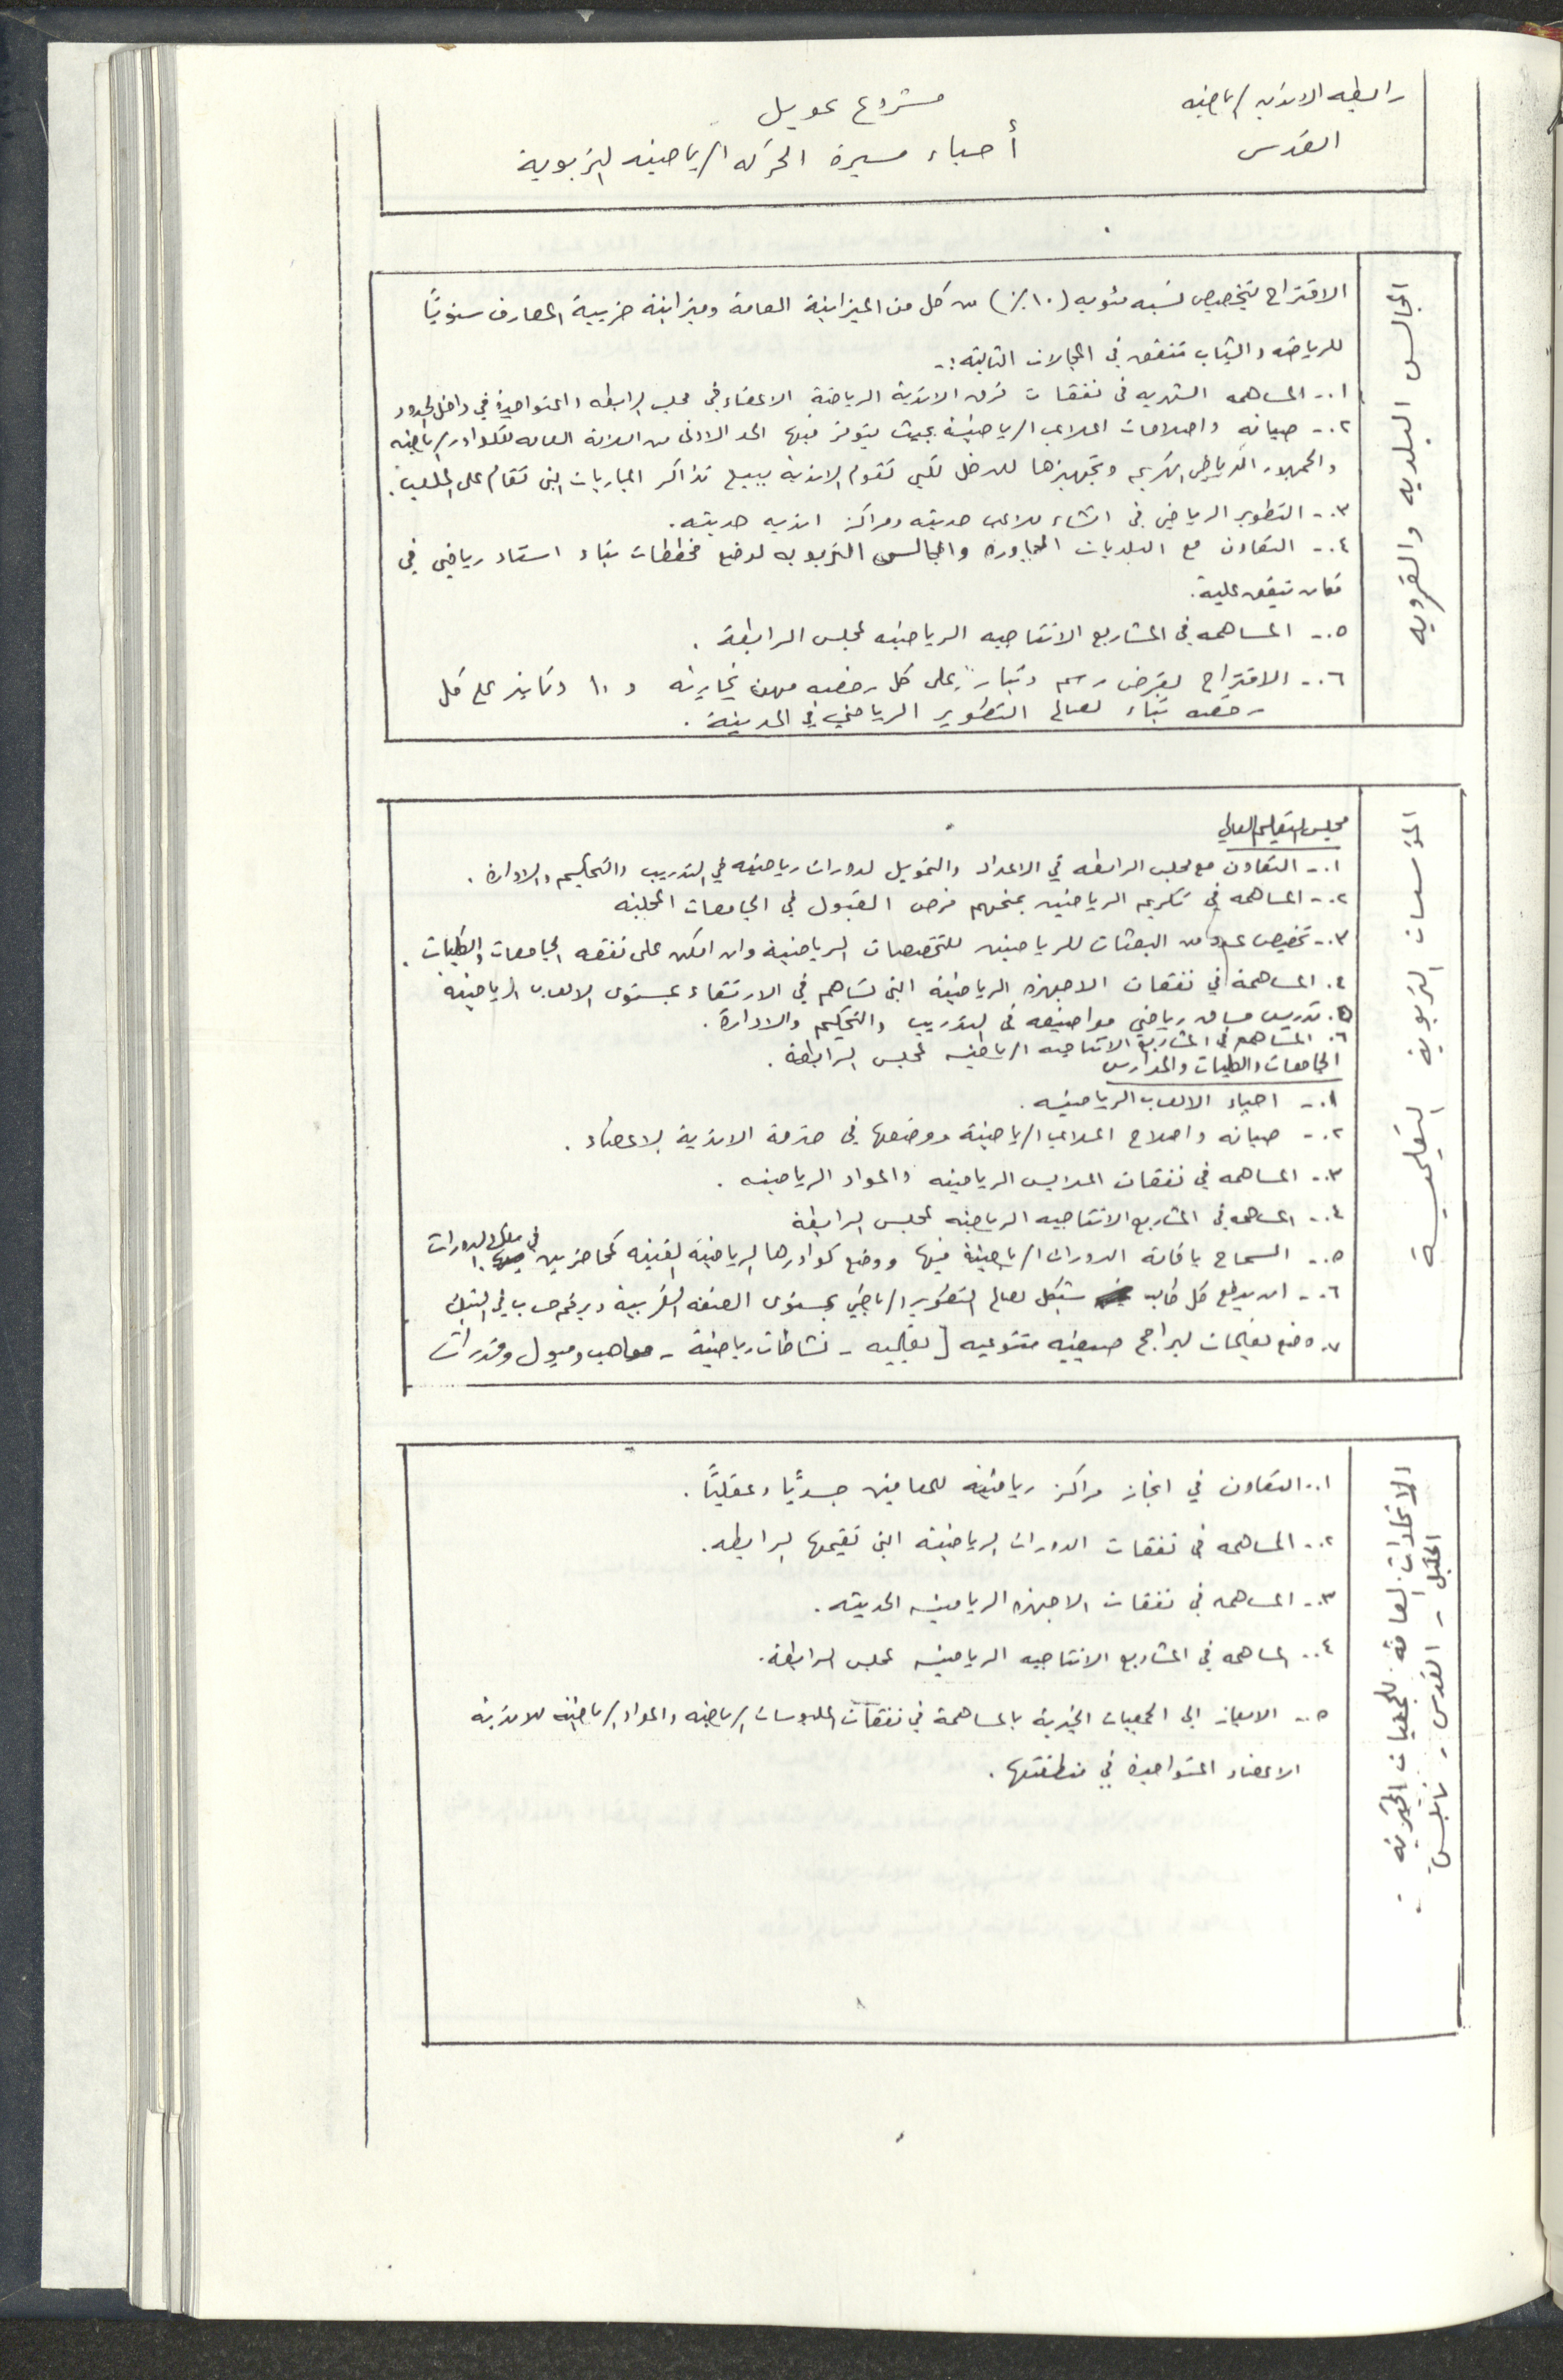 رابطه الانديه الرياضيه
القدس
مشروع تمويل
أحياء مسيرة الحركه الرياضيه التربوية
المجالس البلديه والقرويه
الاقتراح بتخصيص نسبه مئويه (١٠٪) من كل من الميزانية العامة وميزانية ضريبية المعارف سنوياً
للرياضه والشباب تنفق في المجالات التاليه :-
١.- المساهمه الشهريه في نفقات فرق الاندية الرياضة الاعضاء في مجلس الرابطه والمتواجدة في داخل الحدود
٢.- صيانه واصلاحات الملاعب الرياضية بحيث يتوفر فيها الحد الادنى من السلامة العامه للكوادر الرياضيه
والجمهور الرياضي الكريم وتجهيزها للدخل لكي تقوم الاندية ببيع تذاكر المباريات التي تقام على الملعب.
٣.- التطوير الرياضي في انشاء ملاعب حديثه ومراكز انديه حديثه.
٤.- التعاون مع البلديات المجاوره والمجالس التربويه لوضع مخططات بناء استاد رياضي في
مكان يتفق علية.
٥.- المساهمه في المشاريع الانتاجيه الرياضيه لمجلس الرابطة .
٦.- الاقتراح بفرض رسم دينار على كل رخصه مهن تجاريه و ١٠ دنانير على كل
رخصه بناء لصالح التطوير الرياضي في المدينة .
المؤسسات التربوية التعليمية
مجلس التعليم العالي
١.- التعاون مع مجلس الرابطه في الاعداد والتمويل لدورات رياضيه في التدريب والتحكيم والاداره .
٢.- المساهمه في تكريم الرياضين بمنحهم فرص القبول في الجامعات المحلية
٣.- تخصيص عدد من البعثات للرياضين للتخصصات الرياضية وان امكن على نفقه الجامعات والكليات .
٤. المساهمة في نفقات الاجهزه الرياضية التي تساهم في الارتقاء بمستوى الالعاب الرياضية
٥. تدريس مساق رياضي مواضيعه في التدريب والتحكيم والادارة .
٦. المساهمه في المشاريع الانتاجيه الرياضيه لمجلس الرابطة .
الجامعات والكليات والمدارس
١.- احياء الالعاب الرياضيه .
٢.- صيانه واصلاح الملاعب الرياضية ووضعها في خدمة الاندية الاعضاء .
٣.- المساهمه في نفقات الملابس الرياضيه والمواد الرياضيه .
٤.- المساهمه في المشاريع الانتاجيه الرياضيه لمجلس الرابطة
٥.- السماح باقامة الدورات الرياضية فيها ووضع كوادرها الرياضية الفنيه كمحاضرين في تلك الدورات
٦.- ان يدفع كل طالب شيكل لصالح التطوير الرياضي بمستوى الضفه الغربية وبرقم حساب في البنك
٧. وضع تعليمات لبرامج صيفيه متنوعيه [ تعليميه - نشاطات رياضية - مواهب وميول وقدرات
الاتحادات العامة للجمعيات الخيرية
الخليل - القدس - نابلس
١.- التعاون في انجاز مراكز رياضية للمعاقين جسديًا وعقليًا .
٢.- المساهمه في نفقات الدورات الرياضية التي تقيمها الرابطه.
٣.- المساهمه في نفقات الاجهزه الرياضيه الحديثه .
٤.- المساهمه في المشاريع الانتاجيه الرياضيه لمجلس الرابطة.
٥.- الايعاز الى الجمعيات الخيرية بالمساهمة في نفقات الملبوسات الرياضيه والمواد الرياضية للاندية
الاعضاء المتواجدة في منطقتها .